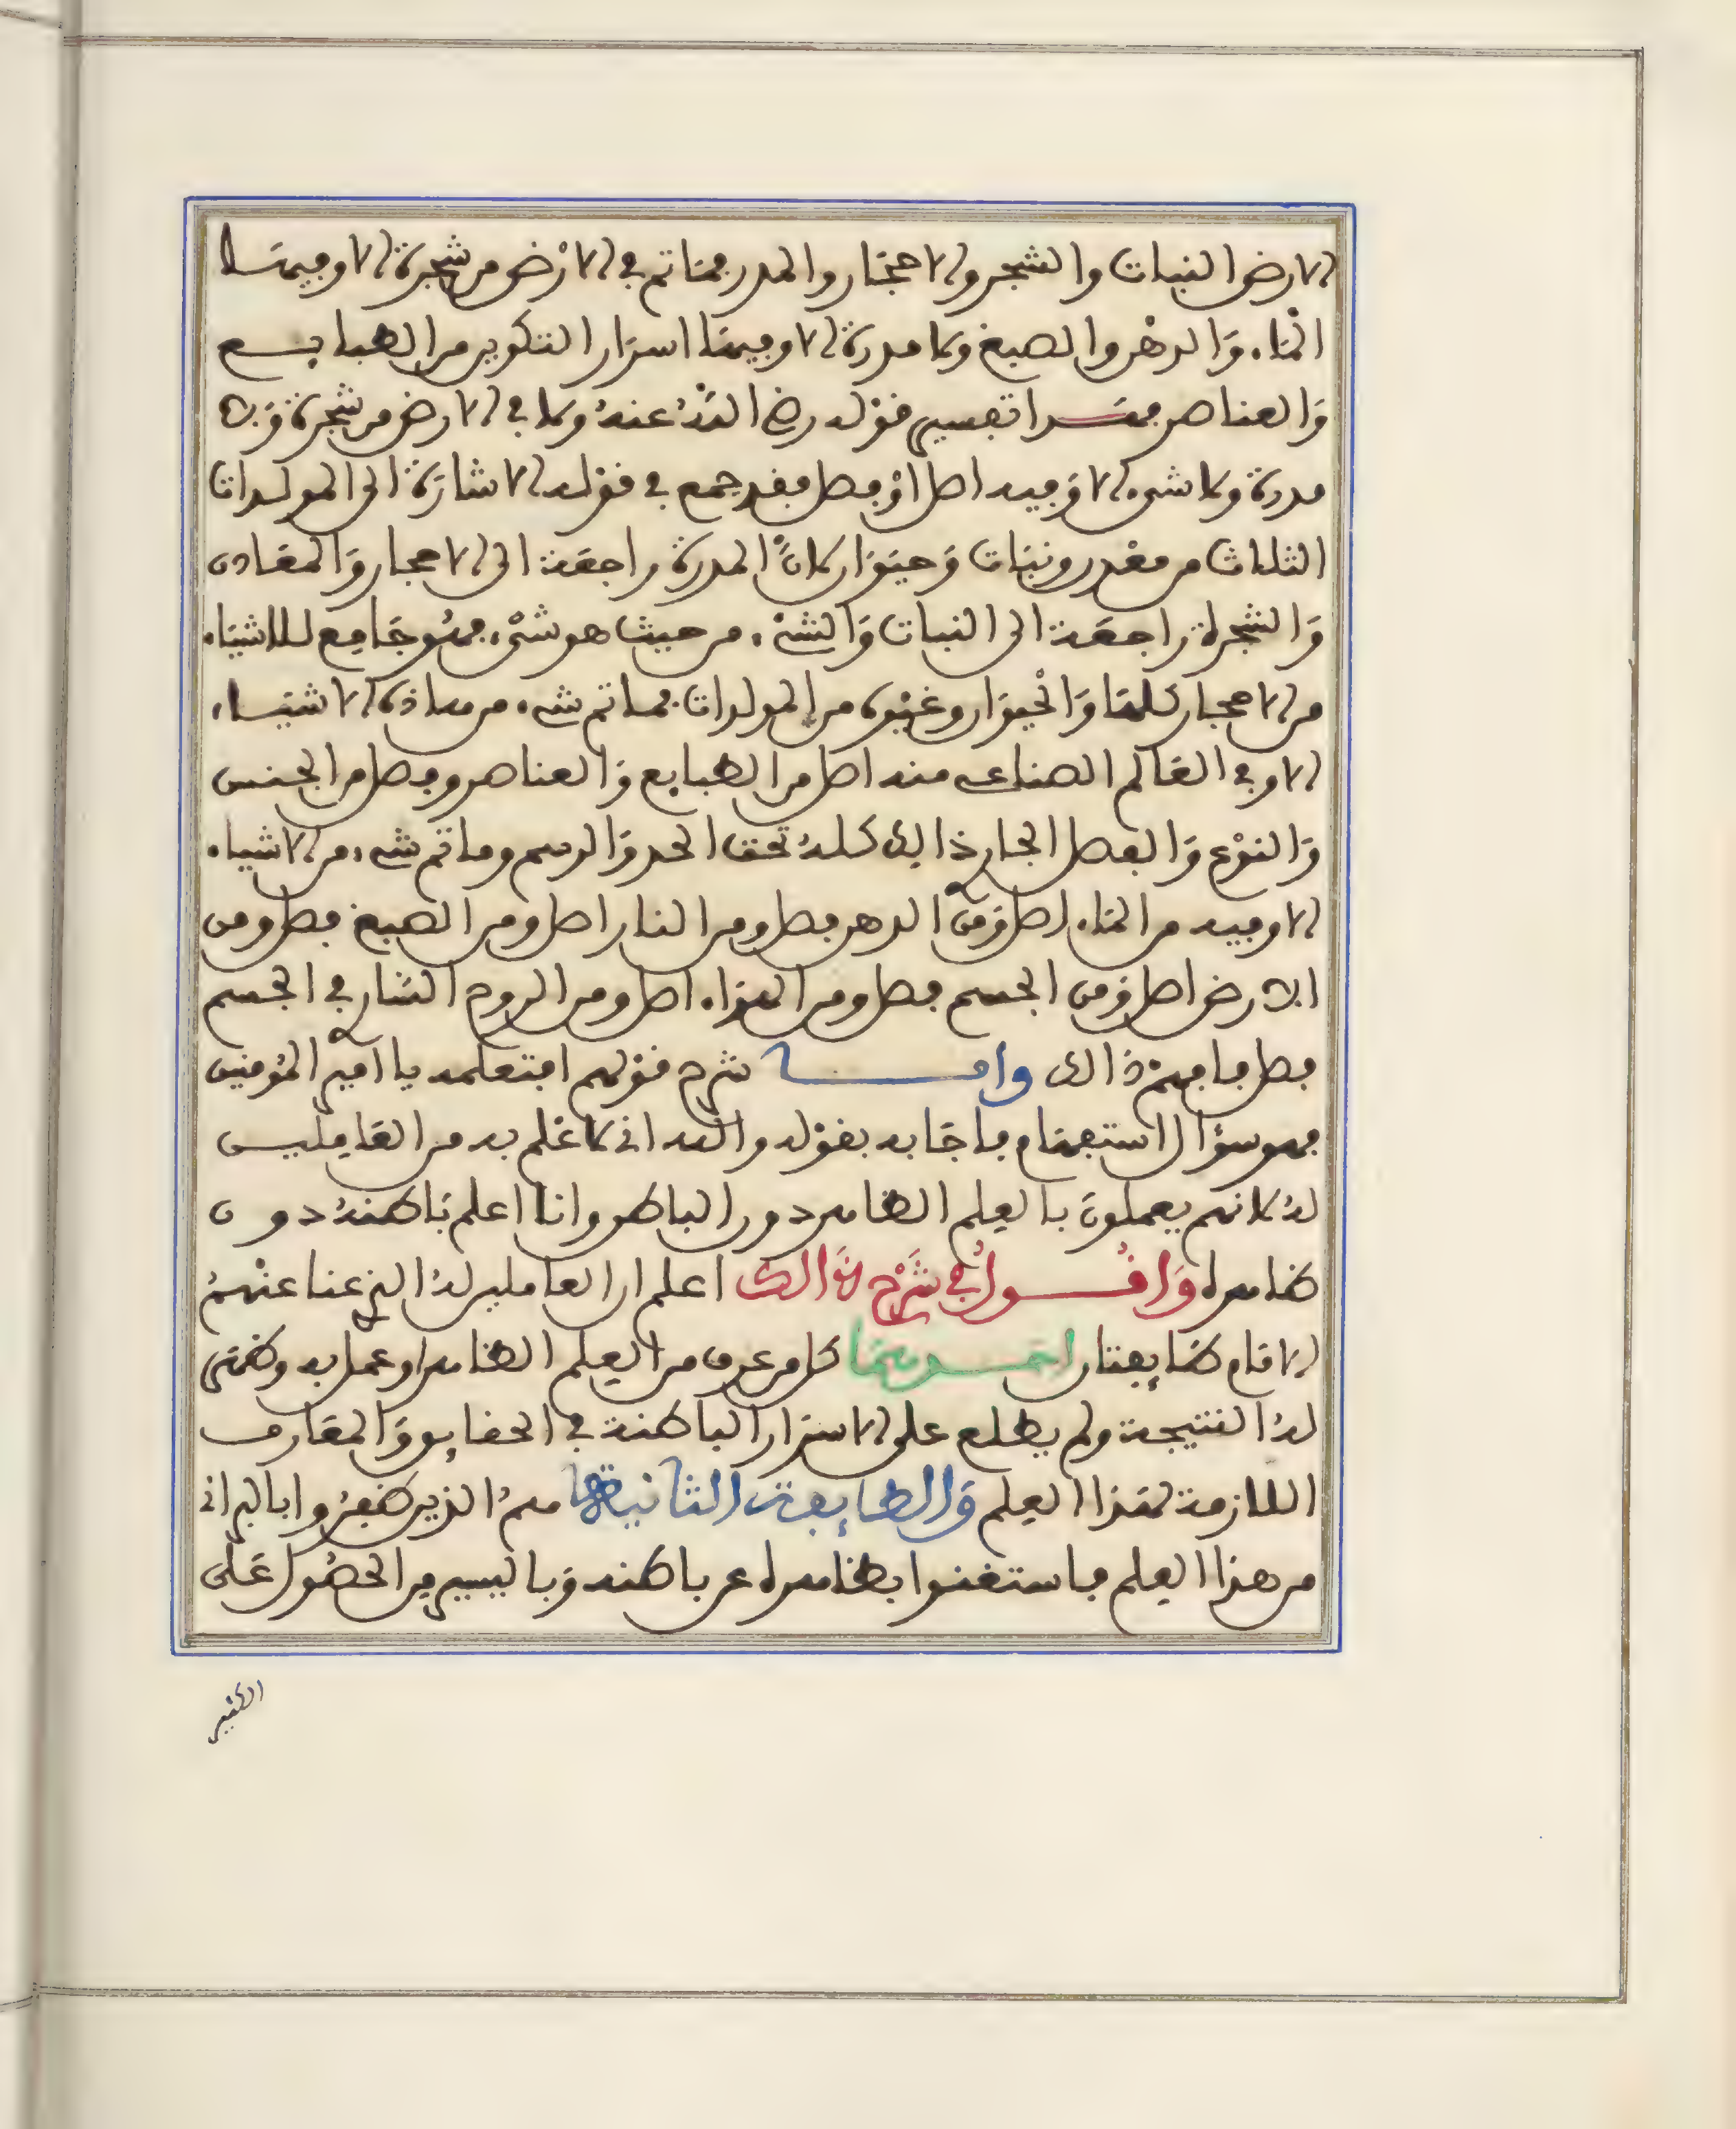 الارض النبات والشجر والاحجار والمدر فما تم في الارض من شجرة الا وفيها
الماء والدهن والصبغ ولا مدرة الا وفيها اسرار التكوين من الطبايع
والعناصر فهذا تفسير قوله رضي الله عنه وما في الارض من شجرة ولا
مدرة ولا شيء الا وفيه اصل او فصل فقد جمع في قوله الاشارة الى المولدات
الثلاث من معدن ونبات وحيوان لان المدرة راجعة الى الاحجار والمعادن
والشجرة راجعة الى النبات والشيء من حيث هو شيء فهو جامع للاشياء
من الاحجار كلها والحيوان وغيره من المولدات فما تم شيء من هاذه الاشياء
الا وفي العالم الصناعي منه اصل من الطبايع والعناصر وفصل من الجنس
والنوع والفصل الجار ذالك كله تحت الحد والرسم وما تم شيء من الاشياء
الا وفيه من الماء اصل ومن الدهن فصل ومن النار اصل ومن الصبغ فصل ومن
الارض اصل ومن الجسم فصل ومن الهواء اصل ومن الروح السار في الجسم
فصل فافهم ذالك واما شرح قولهم افتعلمه يا امير المؤمنين
فهو سؤال استفهام فاجابه بقوله والله اني لاعلم به من العاملين
له لانهم يعملون بالعلم الظاهر دون الباطن وانا اعلم باطنه دون
ظاهره واقول في شرح ذالك اعلم ان العاملين له الذي عنا عنهم
الامام طايفتان احدهما كل من عرف من العلم الظاهر وعمل به وظهرت
له النتيجة ولم يطلع على الاسرار الباطنة في الحقايق والمعارف
اللازمة لهذا العلم والطايفة الثانية هم الذين ظفروا بالبراني
من هذا العلم فاستغنوا بظاهره عن باطنه وباليسير من الحصول على
الكثير